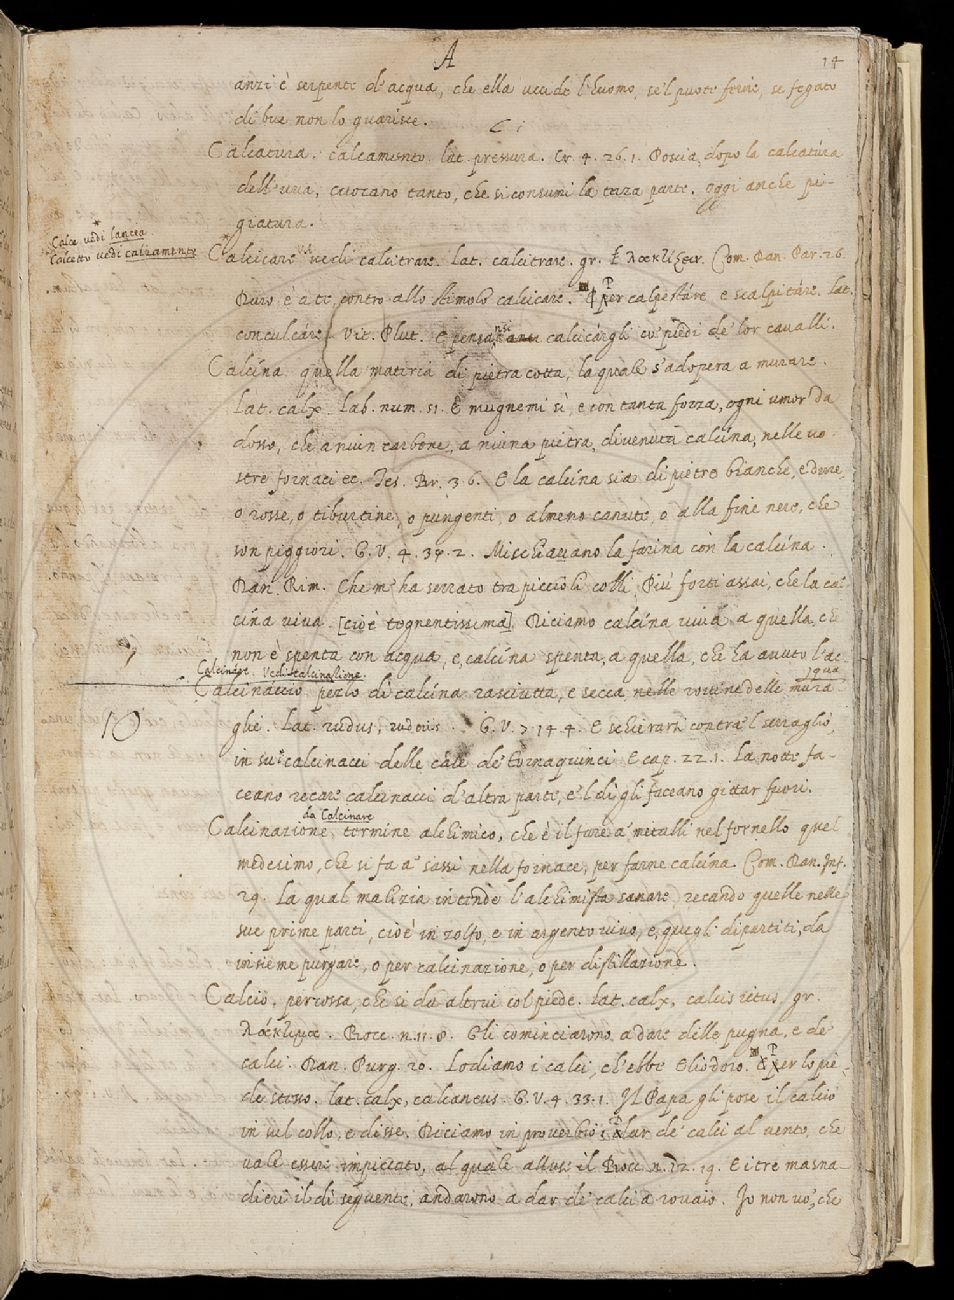 A
14
anzi è serpente d'acqua, che ella uccide l'huomo, se'l puote ferire, se fegato
di bue non lo guarisce.
C i
Calcatura. calcamento. lat. pressura. Cr. 4. 26. 1. Poscia, dopo la calcatúra
dell'uva, cuocano tanto, che si consumi la terza parte. oggi anche pi-
giatura.
Calce vedi lancea.
Calcetto vedi calzamento
Calcicare vedi calcitrare. lat. calcitrare. gr. Com. Dan. Par. 26.
Duro è a te contro allo stimolo calcicare. Per calpestáre e scalpitáre. lat.
conculcáre. Vit. Plut. e pensa calcicárgli co' piedi de' lor cavalli.
Calcína quella materia di pietra cotta, la quale s'adopera a murare.
lat. calx. Lab. num. 51. E mugnemi sì, e con tanta forza, ogni umor da
dosso, che a niun carbone, a niuna pietra, divenuta calcína, nelle vo
stre fornaci ec. Tes. Br. 3. 6. E la calcína sia di pietre bianche, e dure,
o rosse, o tiburtine, o pungenti, o almeno canute, o alla fine nere, che
son piggiori. G. V. 4. 2. Mischiavano la farina con la calcína.
Dan. Rim. Che m' ha serrato tra piccioli colli, Più forti assai, che la cal
cína viva. [cioè tegnentissima] Diciamo calcína viva a quella, che
non è spenta con acqua, e, calcína spenta, a quella, che ha avuto l'ac-
qua
Calcináre. Vedi calcinazione.
Calcinaccio pezzo di calcína rasciutta, e secca nelle rovine delle mura
10
glie. Lat. rudus, ruderis. G. V. 7. 14. 4. E schierarsi contra 'l serraglio,
in su' calcinacci delle case de' Tornaquinci. E cap. 22. 1. La notte fa-
ceano recare calcinacci d'altra parte, e 'l dì gli faceano gittar fuori.
da Calcinare
Calcinazione, termine alchimico, che è il fare a' metalli nel fornello quel
medesimo, che si fa a' sassi nella fornace, per farne calcína. Com. Dan. Inf.
29. La qual malizia intende l'alchimista sanare, recando quelle nelle
sue prime parti, cioè in zolfo, e in argento vivo, e, quegli dipartiti, da
insieme purgare, o per calcinazione, o per distillazione.
Calcio, percossa, che si dà altrui col piede. lat. calx, calcis ictus, gr.
Bocc. n. 11. 8. Gli cominciarono a dare delle pugna, e de'
calci. Dan. Purg. 20. Lodiamo i calci, ch'ebbe Eliodoro. Per lo piè-
de stesso. lat. calx, calcaneus. G. V. 4. 33. 1. Il Papa gli pose il calcio
in sul collo, e disse. Diciamo in proverbio: Dar de' calci al vento, che
vale essere impiccato, al quale alluse il Bocc. n. 12. 19. E i tre masna-
dieri il dì seguente, andarono a dar de' calci a rovaio. Io non vo', che